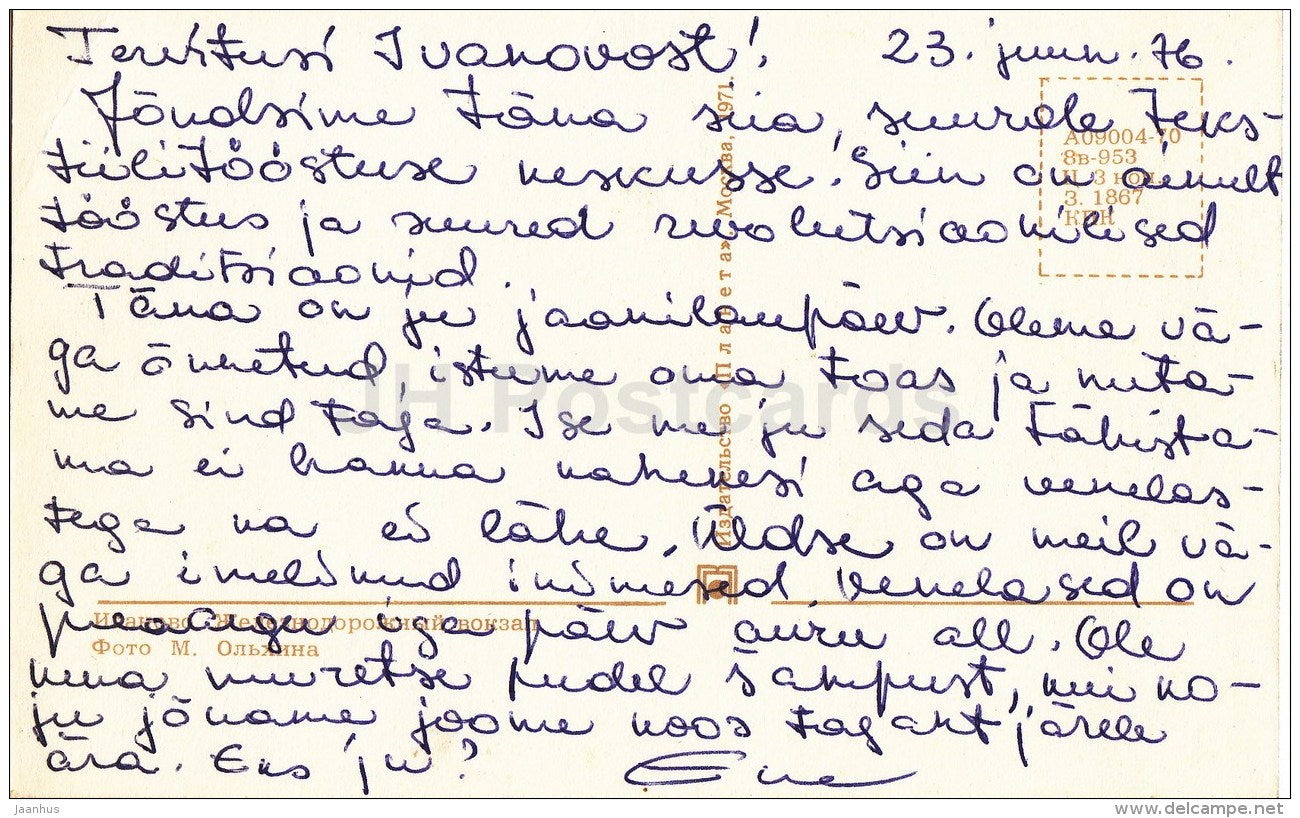 Tervitusi Ivanovost! 23. juun. 76.
Jõudsime täna siia, suurde teks-
tiilitööstuse keskusse. Siin on ainult
tööstus ja suured revolutsioonilised
traditsioonid.
Täna on ju jaanilaupäev. Oleme vä-
ga õnnetud, istume oma toas ja nuta-
me sind taga. Ise me ju seda tähista-
ma ei hakka kahekesi aga venelas-
tega ka ei lähe. Üldse on meil vä-
ga imelikud inimesed. Venelased on
peaaegu iga päev auru all. Ole
kena muretse pudel šampust, kui ko-
ju jõuame joome koos tagantjärele
ära. Eks ju? Ene
А09004-70
8в-953
Ц. 3 коп.
З. 1867
КПК
Издательство «Планета». Москва, 1971.
Иваново. Железнодорожный вокзал
Фото М. Ольхина
JH Postcards
jaanhus
www.delcampe.net